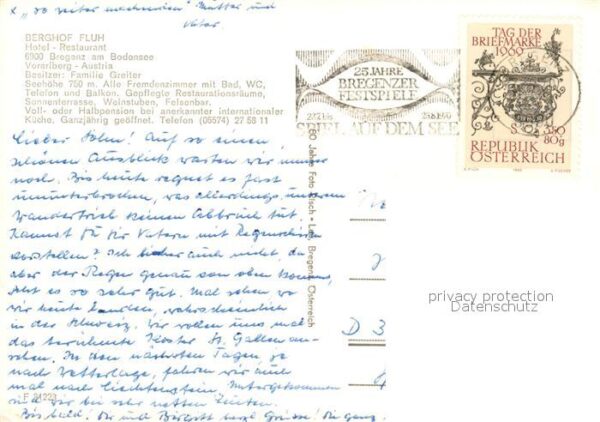 x "so weiter machenden" Mutter und
Vater
BERGHOF FLUH
Hotel - Restaurant
6900 Bregenz am Bodensee
Vorarlberg - Austria
Besitzer: Familie Greiter
Seehöhe 750 m. Alle Fremdenzimmer mit Bad, WC,
Telefon und Balkon. Gepflegte Restaurationsräume,
Sonnenterrasse, Weinstuben, Felsenbar.
Voll- oder Halbpension bei anerkannter internationaler
Küche. Ganzjährig geöffnet. Telefon (05574) 27 58 11
Lieber Sohn! Auf so einen
schönen Ausblick warten wir immer
noch. Bis heute regnet es fast
ununterbrochen, was allerdings unserem
Wandertrieb keinen Abbruch tut.
Kannst Du Dir Vatern mit Regenschirm
vorstellen? Ich bisher auch nicht, da
aber der Regen genau von oben kommt,
geht es so sehr gut. Mal sehen wo
wir heute landen, wahrscheinlich
in der Schweiz. Wir wollen uns mal
das berühmte Kloster St. Gallen an-
sehen. In den nächsten Tagen je
nach Wetterlage, fahren wir auch
mal nach Liechtenstein. Untergekommen
sind wir bei sehr netten Leuten.
Bis bald! Dir und Birgitt herzl. Grüsse! Die ganz
F 21223
60 Jahre Foto Risch-Lau, Bregenz, Österreich
25 JAHRE
BREGENZER
FESTSPIELE
SPIEL AUF DEM SEE
TAG DER
BRIEFMARKE
1969
S 350
80g
REPUBLIK
ÖSTERREICH
D 3
privacy protection
Datenschutz